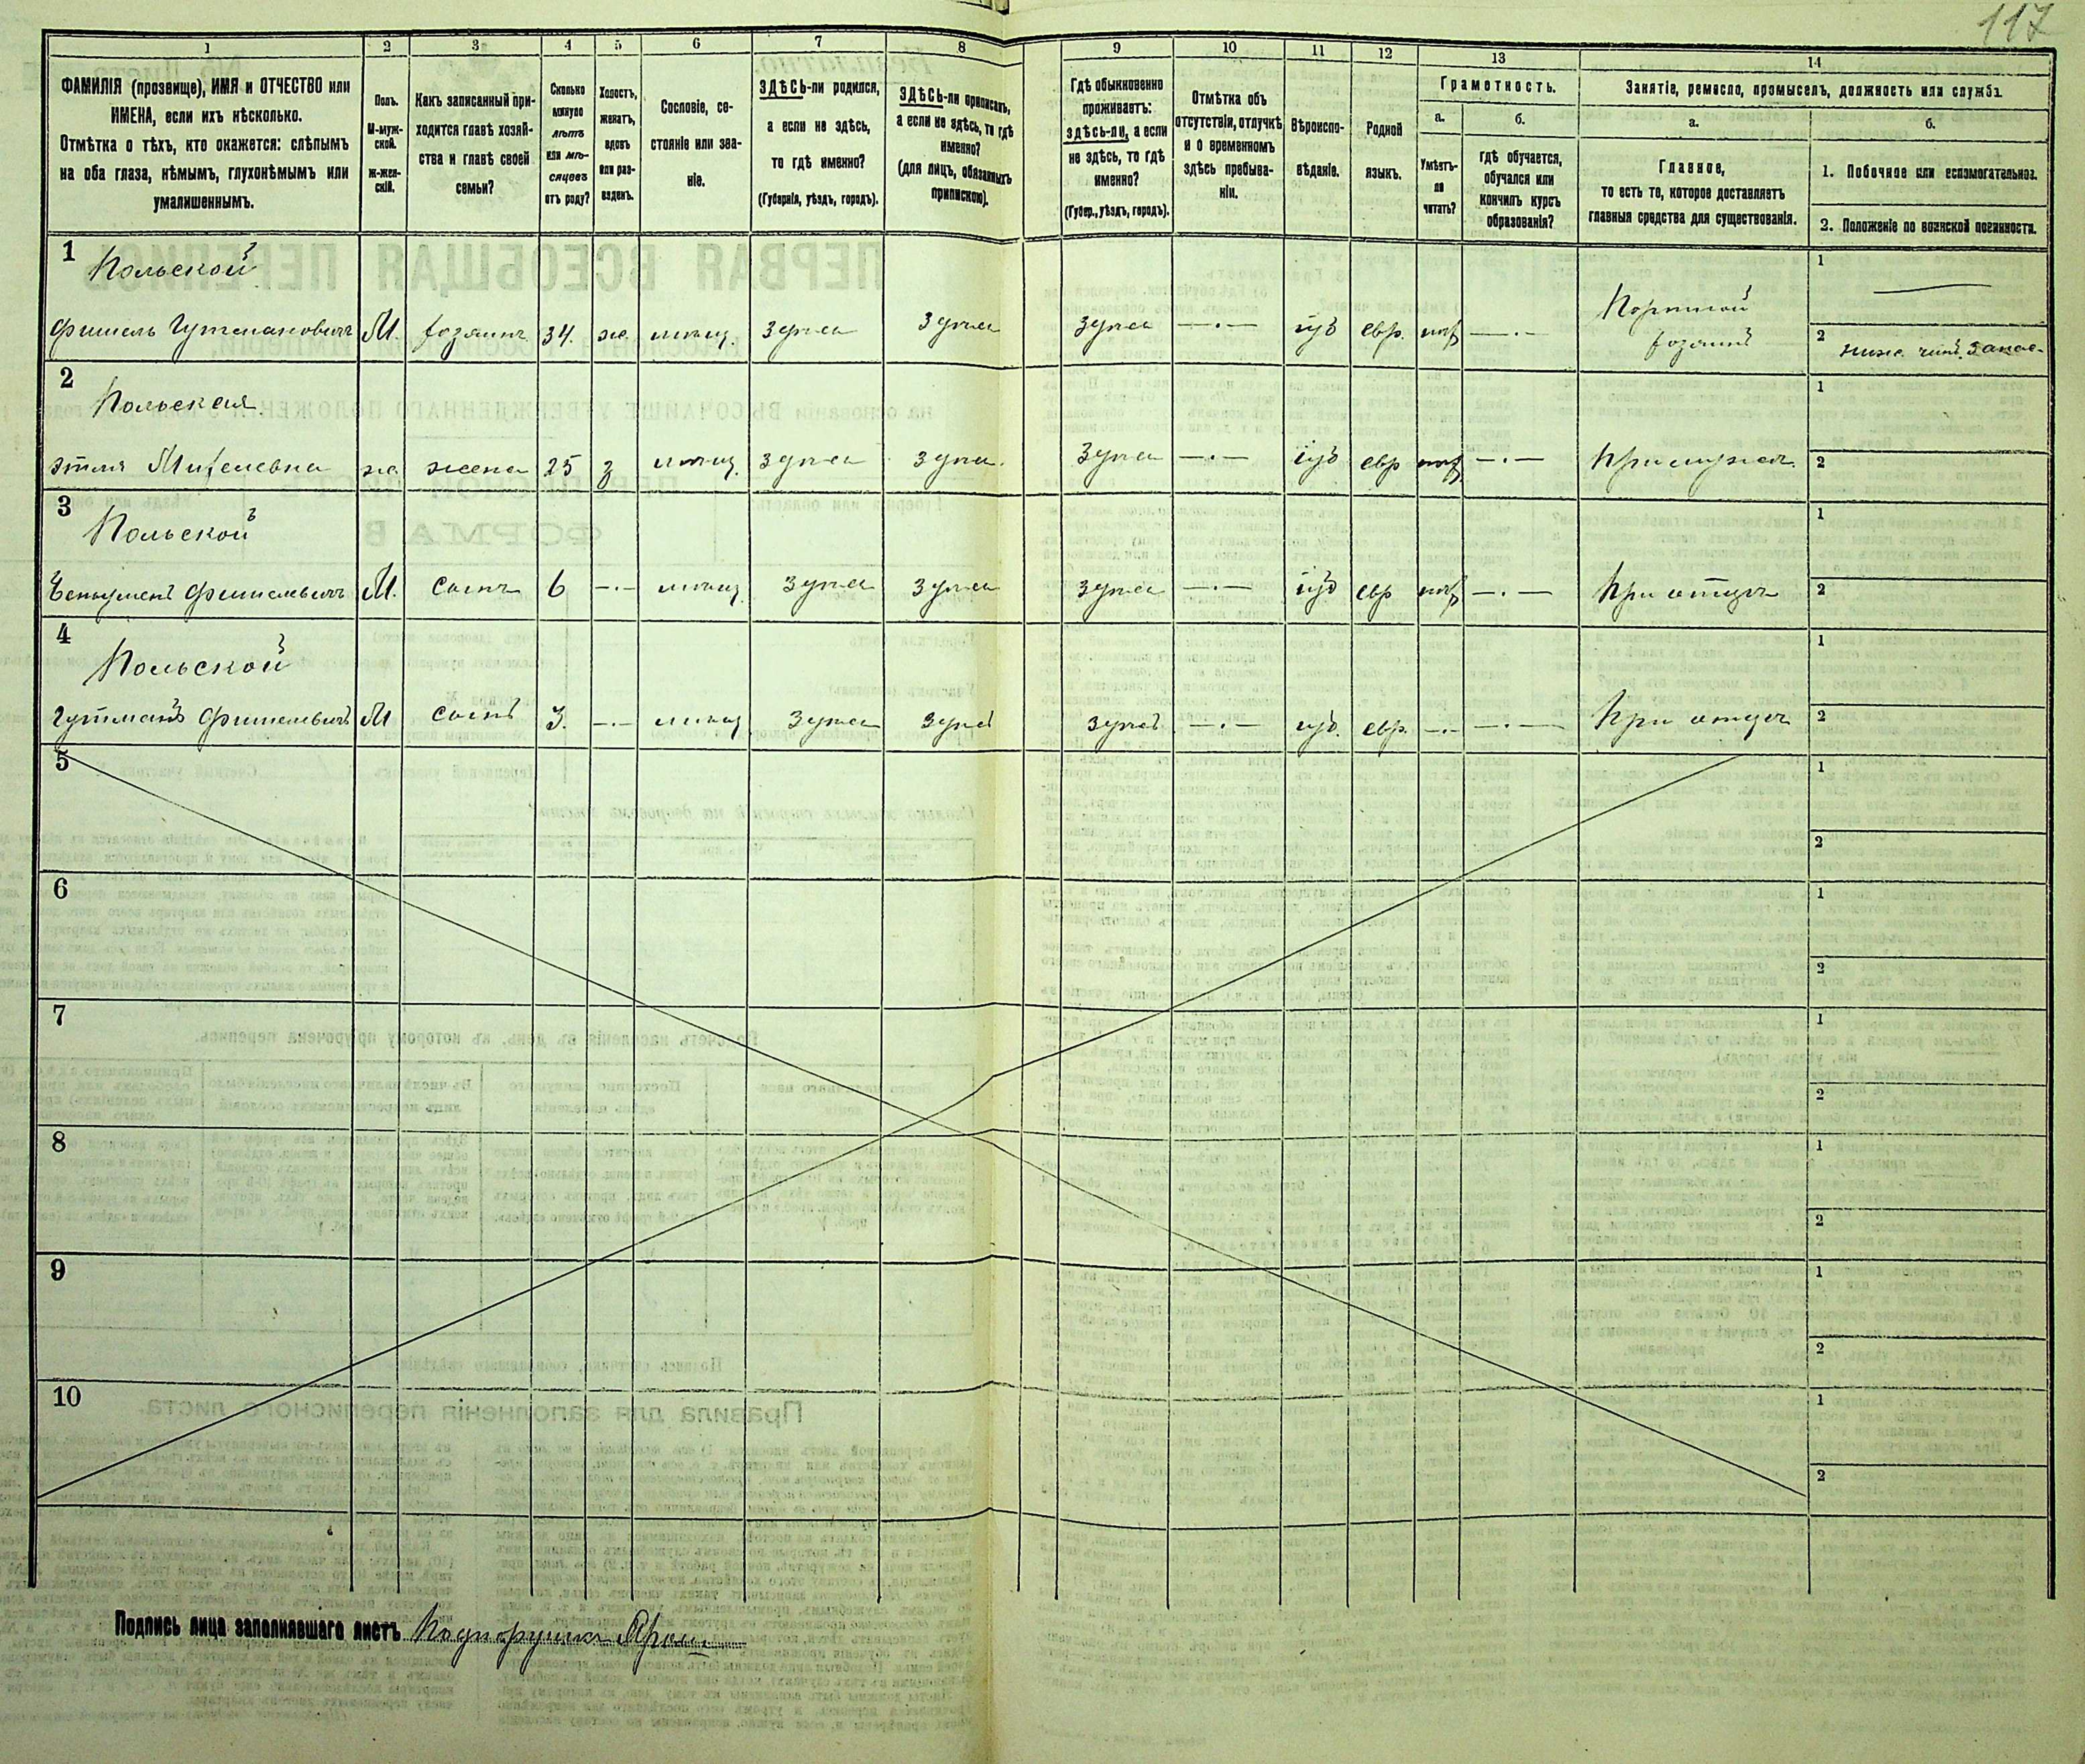 117
1 2 3 4 5 6 7 8 9 10 11 12 13 14
ФАМИЛІЯ (прозвище), ИМЯ и ОТЧЕСТВО или
ИМЕНА, если ихъ нѣсколько.
Отмѣтка о тѣхъ, кто окажется: слѣпымъ
на оба глаза, нѣмымъ, глухонѣмымъ или
умалишеннымъ.
Полъ.
М-муж-
ской.
ж-жен-
скій.
Какъ записанный при-
ходится главѣ хозяй-
ства и главѣ своей
семьи?
Сколько
минуло
лѣтъ
или мѣ-
сяцевъ
отъ роду?
Холостъ,
женатъ,
вдовъ
или раз-
веденъ.
Сословіе, со-
стояніе или зва-
ніе.
ЗДѢСЬ-ли родился,
а если не здѣсь,
то гдѣ именно?
(Губернія, уѣздъ, городъ).
ЗДѢСЬ-ли приписанъ,
а если не здѣсь, то гдѣ
именно?
(для лицъ, обязанныхъ
припискою).
Гдѣ обыкновенно
проживаетъ:
здѣсь-ли, а если
не здѣсь, то гдѣ
именно?
(Губер., уѣздъ, городъ).
Отмѣтка объ
отсутствіи, отлучкѣ
и о временномъ
здѣсь пребыва-
ніи.
Вѣроиспо-
вѣданіе.
Родной
языкъ.
Грамотность.
а.
Умѣетъ-
ли
читать?
б.
гдѣ обучается,
обучался или
кончилъ курсъ
образованія?
Занятіе, ремесло, промыселъ, должность или служба
а.
Главное,
то есть то, которое доставляетъ
главныя средства для существованія.
б.
1. Побочное или вспомогательное.
2. Положеніе по воинской повинности.
1 Польской
Фишель Гутмановичъ М. хозяинъ 34. ж. мѣщ. Здѣсь Здѣсь Здѣсь —·— іуд евр. нѣт —·— Портной хозяинъ
1
2 ниж. чинъ запас.
2 Польская
Этля Михелевна ж. жена 25 з мѣщ. Здѣсь Здѣсь Здѣсь —·— іуд евр нѣт —·— При мужѣ
1
2
3 Польской
Фишелевичъ М. сынъ 6 —·— мѣщ. Здѣсь Здѣсь Здѣсь —·— іуд евр нѣт —·— При отцѣ
1
2
4 Польской
Гутманъ Фишелевичъ М сынъ 3. —·— мѣщ Здѣсь Здѣсь Здѣсь —·— іуд. евр. —·— —·— При отцѣ
1
2
5
1
2
6
1
2
7
1
2
8
1
2
9
1
2
10
1
2
Подпись лица заполнявшаго листъ